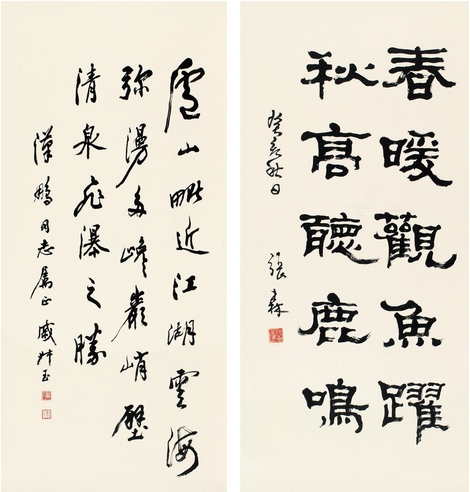 春暖觀魚躍
秋高聽鹿鳴
癸亥秋日 張森
廬山毗近江湖雲海
弥漫多巉巖峭壁
清泉飛瀑之勝
漢鵬同志属正 戚叔玉